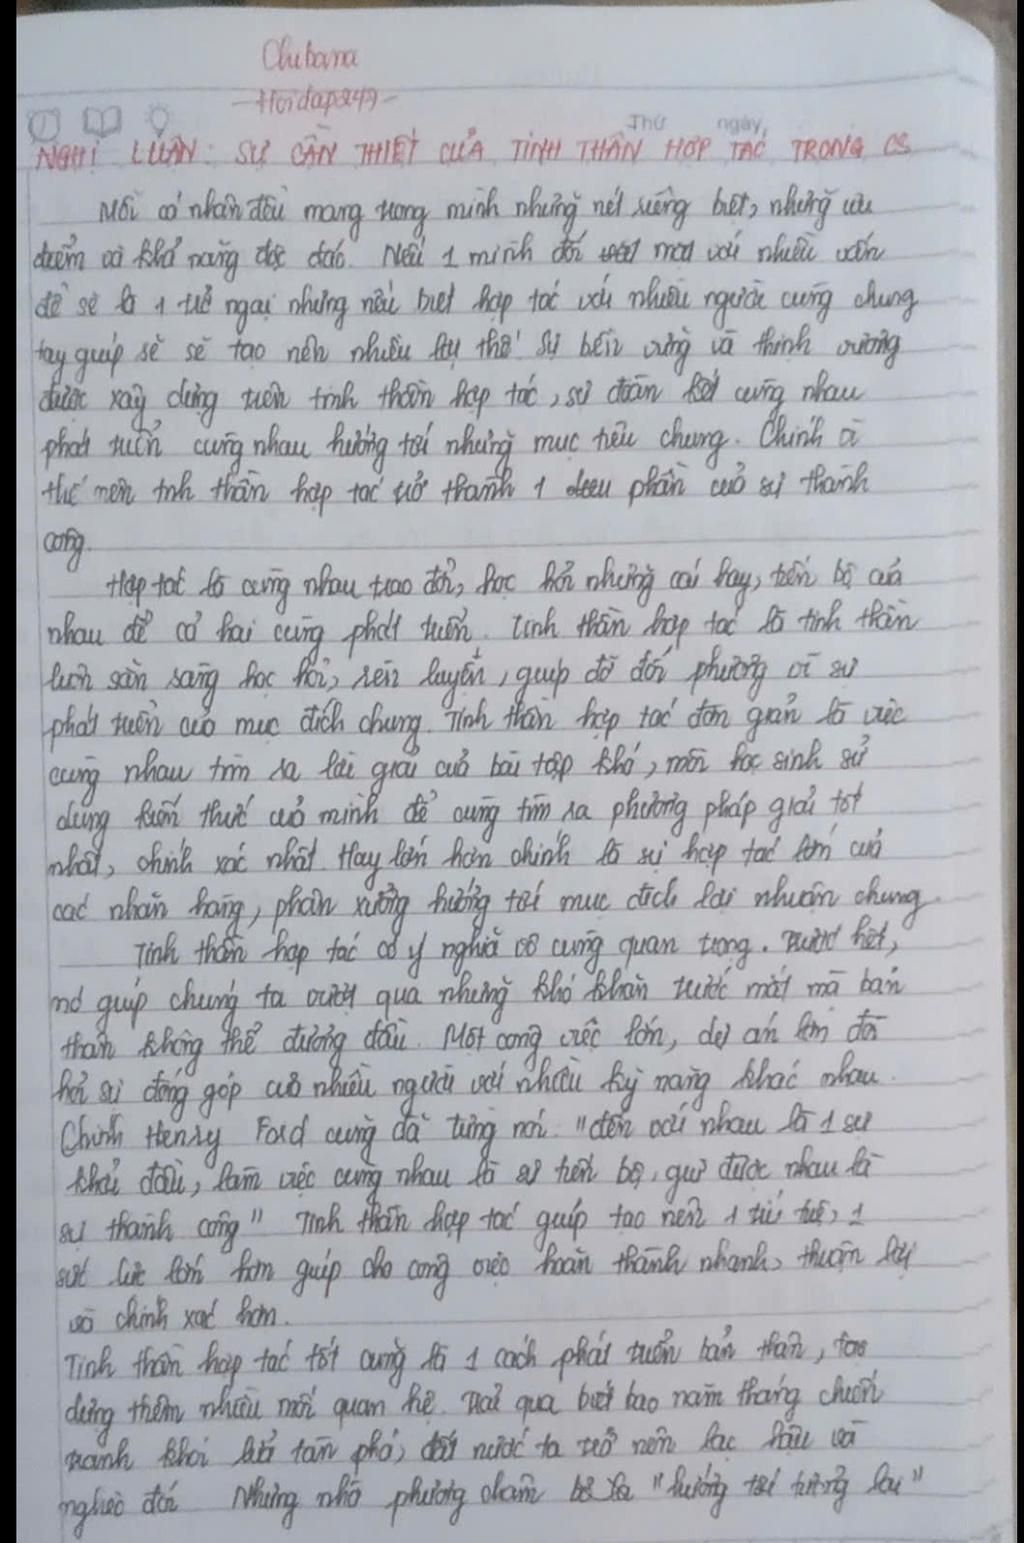 Chubana
-Hoidap247-
Thứ ngày
NGHỊ LUẬN: SỰ CẦN THIẾT CỦA TINH THẦN HỢP TÁC TRONG CS
Mỗi cá nhân đều mang trong mình những nét riêng biệt, những ưu
điểm và khả năng độc đáo. Nếu 1 mình đối mặt với nhiều vấn
đề sẽ là 1 trở ngại nhưng nếu biết hợp tác với nhiều người cùng chung
tay giúp sẽ sẽ tạo nên nhiều lợi thế! Sự bền vững và thịnh vượng
được xây dựng trên tinh thần hợp tác, sự đoàn kết cùng nhau
phát triển cùng nhau hướng tới những mục tiêu chung. Chính vì
thế nên tinh thần hợp tác trở thành 1 phần của sự thành
công.
Hợp tác là cùng nhau trao đổi, học hỏi những cái hay, tiến bộ của
nhau để cả hai cùng phát triển. Tinh thần hợp tác là tinh thần
luôn sẵn sàng học hỏi, rèn luyện, giúp đỡ đối phương vì sự
phát triển của mục đích chung. Tinh thần hợp tác đơn giản là việc
cùng nhau tìm ra lời giải của bài tập khó, mỗi học sinh sử
dụng kiến thức của mình để cùng tìm ra phương pháp giải tốt
nhất, chính xác nhất. Hay lớn hơn chính là sự hợp tác lớn của
các nhãn hàng, phân xưởng hướng tới mục đích lợi nhuận chung.
Tinh thần hợp tác có ý nghĩa vô cùng quan trọng. Trước hết,
nó giúp chúng ta vượt qua những khó khăn trước mắt mà bản
thân không thể đương đầu. Một công việc lớn, dự án lớn đòi
hỏi sự đóng góp của nhiều người với nhiều kỹ năng khác nhau.
Chính Henry Ford cũng đã từng nói "đến với nhau là 1 sự
khởi đầu, làm việc cùng nhau là sự tiến bộ, giữ được nhau là
sự thành công" Tinh thần hợp tác giúp tạo nên 1 trí tuệ, 1
sức lực lớn hơn giúp cho công việc hoàn thành nhanh, thuận lợi
và chính xác hơn.
Tinh thần hợp tác tốt cũng là 1 cách phát triển bản thân, tạo
dựng thêm nhiều mối quan hệ. Trải qua biết bao năm tháng chiến
tranh khói lửa tàn phá, đất nước ta trở nên lạc hậu và
nghèo đói Nhưng nhờ phương châm "hướng tới tương lai"